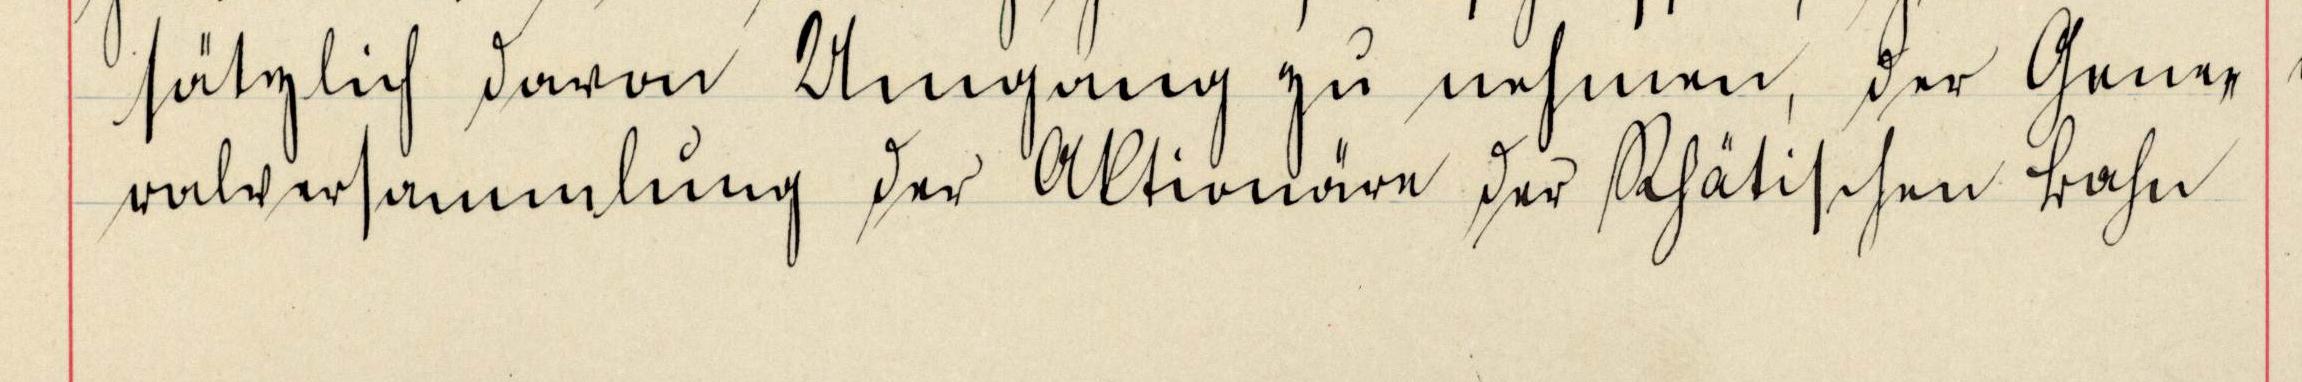 sätzlich davon Umgang zu nehmen, der Gene-
ralversammlung der Aktionäre der Rhätischen Bahn